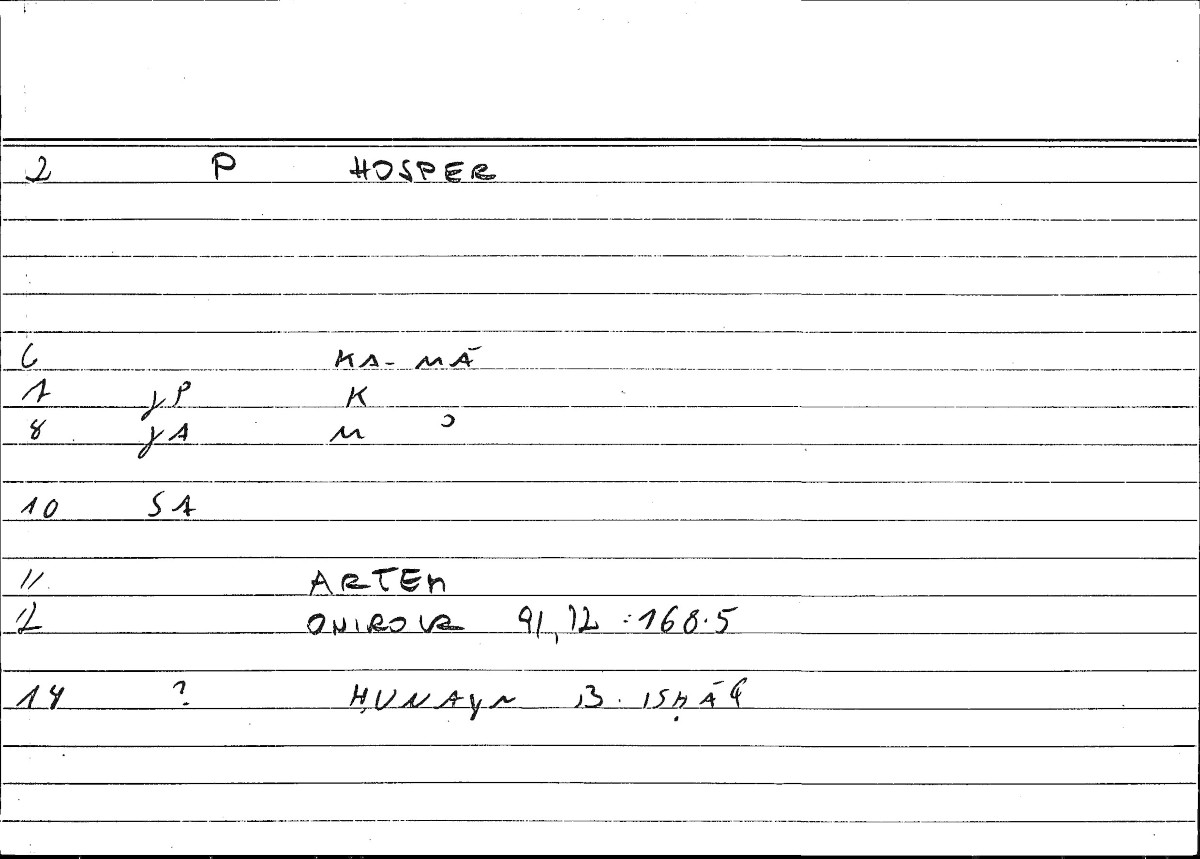 2 P HOSPER
6 KA- MĀ
7 γP K
8 γA M ʾ
10 SA
11 ARTEM
12 ONIROCR 91,12 :168.5
14 ? ḤUNAYN B. ISḤĀQ